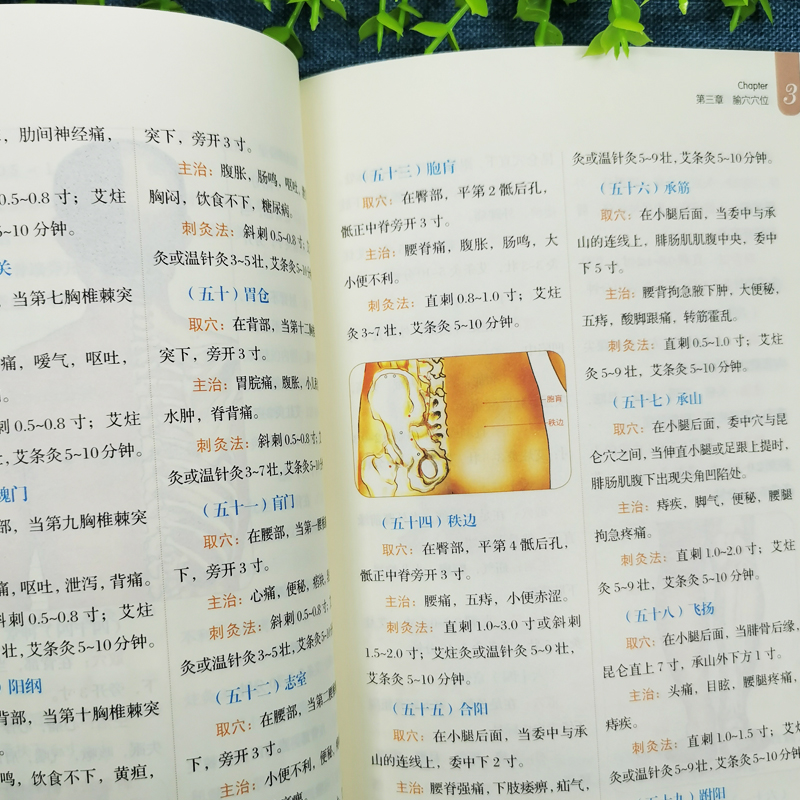 ，肋间神经痛，
0.5~0.8 寸；艾炷
5~10 分钟。
关
，当第七胸椎棘突
痛，嗳气，呕吐，
刺 0.5~0.8 寸；艾炷
壮，艾条灸 5~10 分钟。
魂门
部，当第九胸椎棘突
痛，呕吐，泄泻，背痛。
斜刺 0.5~0.8 寸；艾炷
壮，艾条灸 5~10 分钟。
）阳纲
背部，当第十胸椎棘突
鸣，饮食不下，黄疸，
突下，旁开 3 寸。
主治：腹胀，肠鸣，呕吐，
胸闷，饮食不下，糖尿病。
刺灸法：斜刺 0.5~0.8 寸；
灸或温针灸 3~5 壮，艾条灸 5~10
（五十）胃仓
取穴：在背部，当第十二胸
突下，旁开 3 寸。
主治：胃脘痛，腹胀，小儿
水肿，脊背痛。
刺灸法：斜刺 0.5~0.8 寸；
灸或温针灸 3~7 壮，艾条灸 5~10
（五十一）肓门
取穴：在腰部，当第一腰
下，旁开 3 寸。
主治：心痛，便秘，
刺灸法：斜刺 0.5~0.8 寸；
灸或温针灸 3~5 壮，艾条灸 5~10
（五十二）志室
取穴：在腰部，当第二腰
下，旁开 3 寸。
主治：小便不利，便秘，
Chapter
第三章 腧穴穴位
3
（五十三）胞肓
取穴：在臀部，平第 2 骶后孔，
骶正中脊旁开 3 寸。
主治：腰脊痛，腹胀，肠鸣，大
小便不利。
刺灸法：直刺 0.8~1.0 寸；艾炷
灸 3~7 壮，艾条灸 5~10 分钟。
胞肓
秩边
（五十四）秩边
取穴：在臀部，平第 4 骶后孔，
骶正中脊旁开 3 寸。
主治：腰痛，五痔，小便赤涩。
刺灸法：直刺 1.0~3.0 寸或斜刺
1.5~2.0 寸；艾炷灸或温针灸 5~9 壮，
艾条灸 5~10 分钟。
（五十五）合阳
取穴：在小腿后面，当委中与承
山的连线上，委中下 2 寸。
主治：腰脊强痛，下肢痿痹，疝气，
灸或温针灸 5~9 壮，艾条灸 5~10 分钟。
（五十六）承筋
取穴：在小腿后面，当委中与承
山的连线上，腓肠肌肌腹中央，委中
下 5 寸。
主治：腰背拘急腋下肿，大便秘，
五痔，酸脚跟痛，转筋霍乱。
刺灸法：直刺 0.5~1.0 寸；艾炷
灸 5~9 壮，艾条灸 5~10 分钟。
（五十七）承山
取穴：在小腿后面，委中穴与昆
仑穴之间，当伸直小腿或足跟上提时，
腓肠肌腹下出现尖角凹陷处。
主治：痔疾，脚气，便秘，腰腿
拘急疼痛。
刺灸法：直刺 1.0~2.0 寸；艾炷
灸 5~9 壮，艾条灸 5~10 分钟。
（五十八）飞扬
取穴：在小腿后面，当腓骨后缘，
昆仑直上 7 寸，承山外下方 1 寸。
主治：头痛，目眩，腰腿疼痛，
痔疾。
刺灸法：直刺 1.0~1.5 寸；艾炷
灸或温针灸 5~9 壮，艾条灸 5~10 分钟
（五十九）跗阳